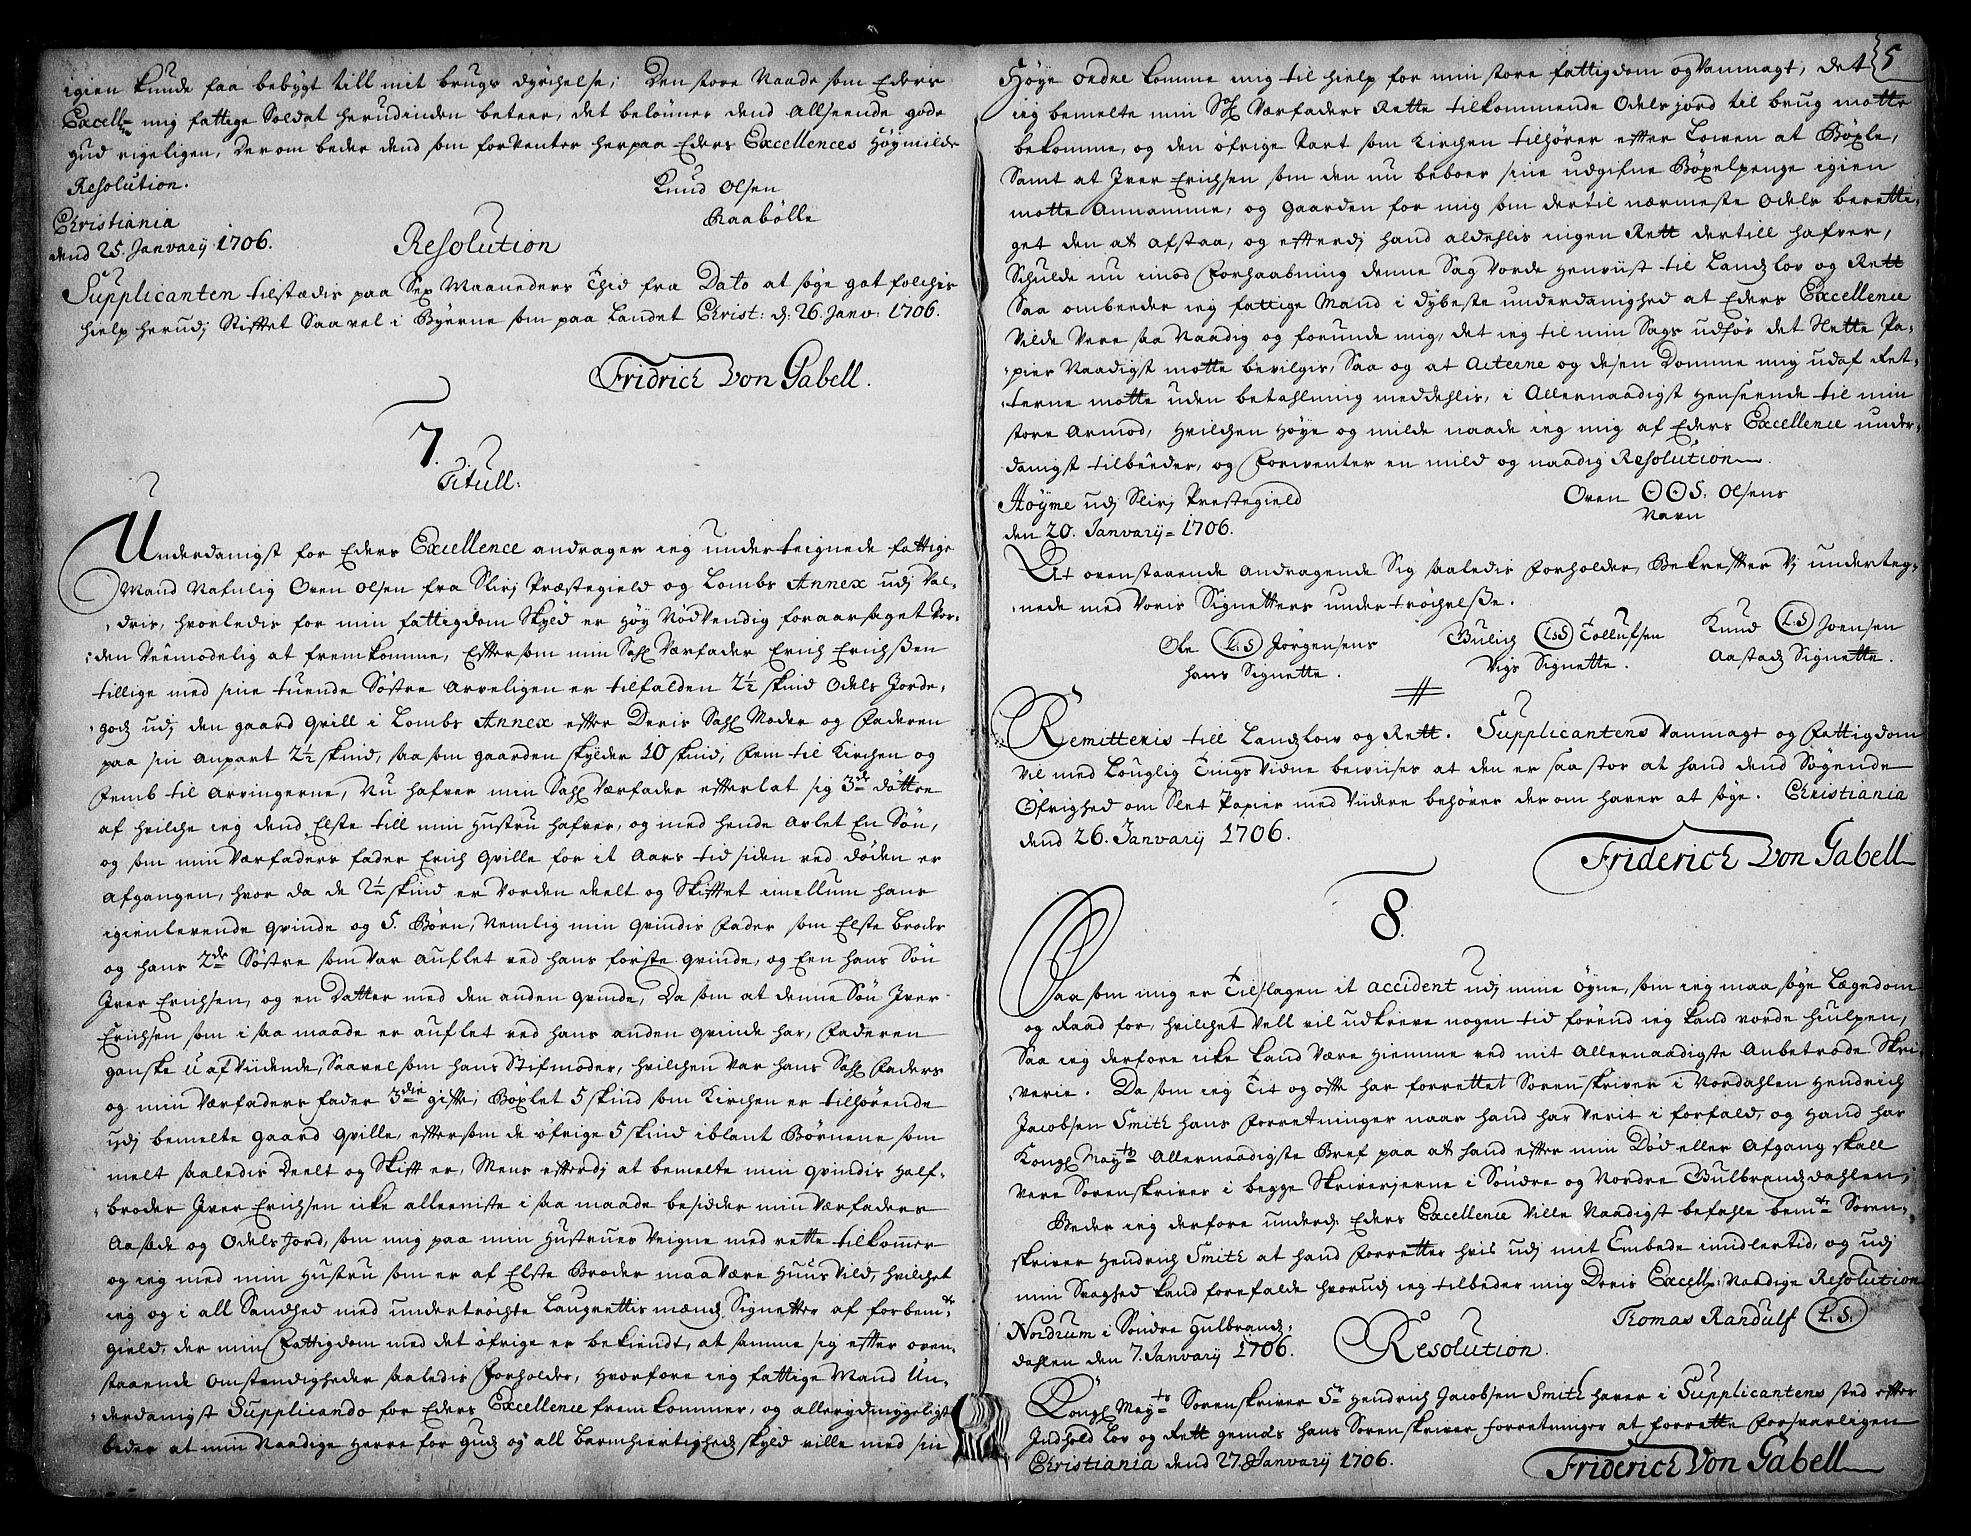 igien kunde faa bebygt till mit brugs dyrchelse; Den store Naade som Eders
Excell: mig fattige Soldat herudinden beteer, det belønner dend Allseende gode
gud rigeligen, Derom beder dend som forventer herpaa Eders Excellences Høymilde
Resolution.
Knud Olsen
Christiania
Raabølle
dend 25. Janvarij 1706.
Resolution
Supplicanten tilstædis paa Sex Maaneders Thid fra Dato at søge got folchis
hielp herudj Stiftet Saavel i Byerne som paa Landet Christ: d: 26. Janv: 1706.
Fridrich Von Gabell.
7.
Titull:
Underdanigst for Eders Excellence andrager ieg underteignede fattige
Mand Nafnlig Oven Olsen fra Slirj Præstegield og Lombs Annex udj Val-
dris, hvorledis for min fattigdom Skyld er høy Nødvendig foraarsaget Vor-
den Veemodelig at fremkomme, Eftersom min Sahl Værfader Erich Erichssen
tillige med sine tuende Søstre Arveligen er tilfalden 2½ skind Odels Jorde-
godz udj den gaard Qville i Lombs Annex efter Deris Sahl Moder og Faderen
paa sin Anpart 2½ skind, saa som gaarden skylder 10 skind, fem til Kirchen og
Femb til Arvingerne, Nu hafver min Sahl Værfader efterlat sig 3de døttre
af hvilche ieg dend Elste till min Hustru hafver, og med hende Avlet En Søn,
og som min Værfaders fader Erich Qville for it Aars tid siden ved døden er
afgangen, hvor da de 2½ skind er Vorden deelt og Skiftet imellum hans
igienlevende qvinde og 5. Børn, Nemlig min qvindis Fader som Elste Broder
og hans 2de Søstre som var Auflet ved hans første qvinde, og Een hans Søn
Iver Erichsen, og en Datter med den anden qvinde, Da som at denne Søn Iver
Erichsen som i saa maade er auflet ved hans anden qvinde har, Faderen
ganske u afvidende, Saavel som hans Stifmoder, hvilchen var hans Sahl Faders
og min Værfaders fader 3die gifte, Bøxlet 5 skind som Kirchen er tilhørende
udj bemelte gaard Qville, eftersom de øfrige 5 skind iblant Børnene som
melt saaledis Deelt og Skift er, Mens efterdj at bemelte min qvindis Half-
broder Iver Erichsen icke alleeniste i saa maade besidder min Værfaders
Aasæde og Odels Jord, som mig paa min Hustrues Veigne med rette tilkommer
og ieg med min Hustru som er af Elste Broder maa Være Huus Vild, hvilchet
ieg og i all Sandhed med undertrøchte Laugrettis mændz Signetter af forbemte
gield, der min Fattigdom med det øfrige er bekiendt, at samme sig efter oven-
staaende Omstendigheder saaledis forholder, hvorfore ieg fattige Mand Un-
derdanigst Supplicando for Eders Excellence fremkommer, og allerydmygeligst
beder at min Naadige Herre for Gudz og all Barmhiertighedz skyld ville med sin
5
Høye ordre komme mig til hielp for min store fattigdom og Vanmagt, det
ieg bemelte min Sahl Værfaders Rette tilkommende Odels jord til brug motte
bekomme, og den øfrige Part som Kirchen tilhører efter Lowen at Bøxle,
Samt at Iver Erichsen som den nu beboer sine udgifne Bøxelpenge igien
motte Annamme, og Gaarden for mig som dertil nærmeste Odels beretti-
get den at afstaa, og efterdj hand aldehlis ingen Rett dertill hafver,
Schulde nu imod Forhaabning denne Sag Vorde henviist til Landzlov og Rett
Saa ombeeder ieg fattige Mand i dybeste underdanighed at Eders Excellence
Vilde Vere saa Naadig og forunde mig, det ieg til min Sags udfør det Slette Pa-
pier Naadigst motte bevilgis, Saa og at Acterne og desen Domme mig udaf Ret-
terne motte uden betahlning meddehlis, i Allernaadigst Henseende til min
store Armod, hvilchen Høye og milde naade ieg mig af Eders Excellence under-
danigst tilbeeder, og Forwenter en mild og naadig Resolution
Høyme udj Slirj Prestegield
Oven OOS: Olsens
Navn
den 20. Janvarij 1706.
At ovenstaaende Andragende Sig saaledis forholder, Bekrefter Vj underteg-
nede med Voris Signetters undertrøchelsse.
Ole (L.S) Jørgensens
Signette.
hans Signette.
(L.S) Tollufsen
Vigs Signette.
Knud (L.S) Joensen
Aastadz Signette.
Remitteris till Landzlow og Rett. Supplicantens Vanmagt og Fattigdom
Vil med Louglig Tings Vidne bewiises at den er saa stor at hand dend Søgende
Øfrighed om Slet Papier med Viidere behøver derom haver at søge. Christiania
dend 26. Janvarij 1706.
Friderich Von Gabell
8.
Saa som mig er Tilslagen it accident udj mine Øyne, som ieg maa søge Lægedom
og Raad for, hvilchet Vell vil udkreve nogen tid førend ieg kand vorde hiulpen,
Saa ieg derfore icke kand Være hiemme ved mit Allernaadigste Anbetrode Skri-
verie. Da som ieg Tit og ofte har forrettet Sorenskriver i Nordahlen Hendrich
Jacobsen Smith hans Forretninger naar hand har Verit i forfald, og Hand har
Kongl Maytz Allernaadigste Bref paa at hand efter min Død eller Afgang skall
Vere Sorenskriver i begge Skriverjerne i Søndre og Nordre Gulbrandzdahlen,
Beder ieg derfore underd. Eders Excellence Ville Naadigst befahle bemte Soren-
skriver Hendrich Smith at hand Forretter hvis udj mit Embede imidlertid, og udj
min Svaghed kand forefalde hvorudj ieg tilbeder mig Deris Excell: Naadige Resolution
Nordrum i Søndre Gulbrandz-
Thomas Randulf (L.S.)
dahlen den 7. Janvarij 1706.
Resolution.
Kongl Mayts Sorenskriver Sr Hendrich Jacobsen Smith haver i Supplicantens sted efter
Indhold Lov og Rett gemæs hans Sorenskriver Forretninger at forrette Forsvarligen
Christiania dend 27. Janvarij 1706.
Friderich Von Gabell